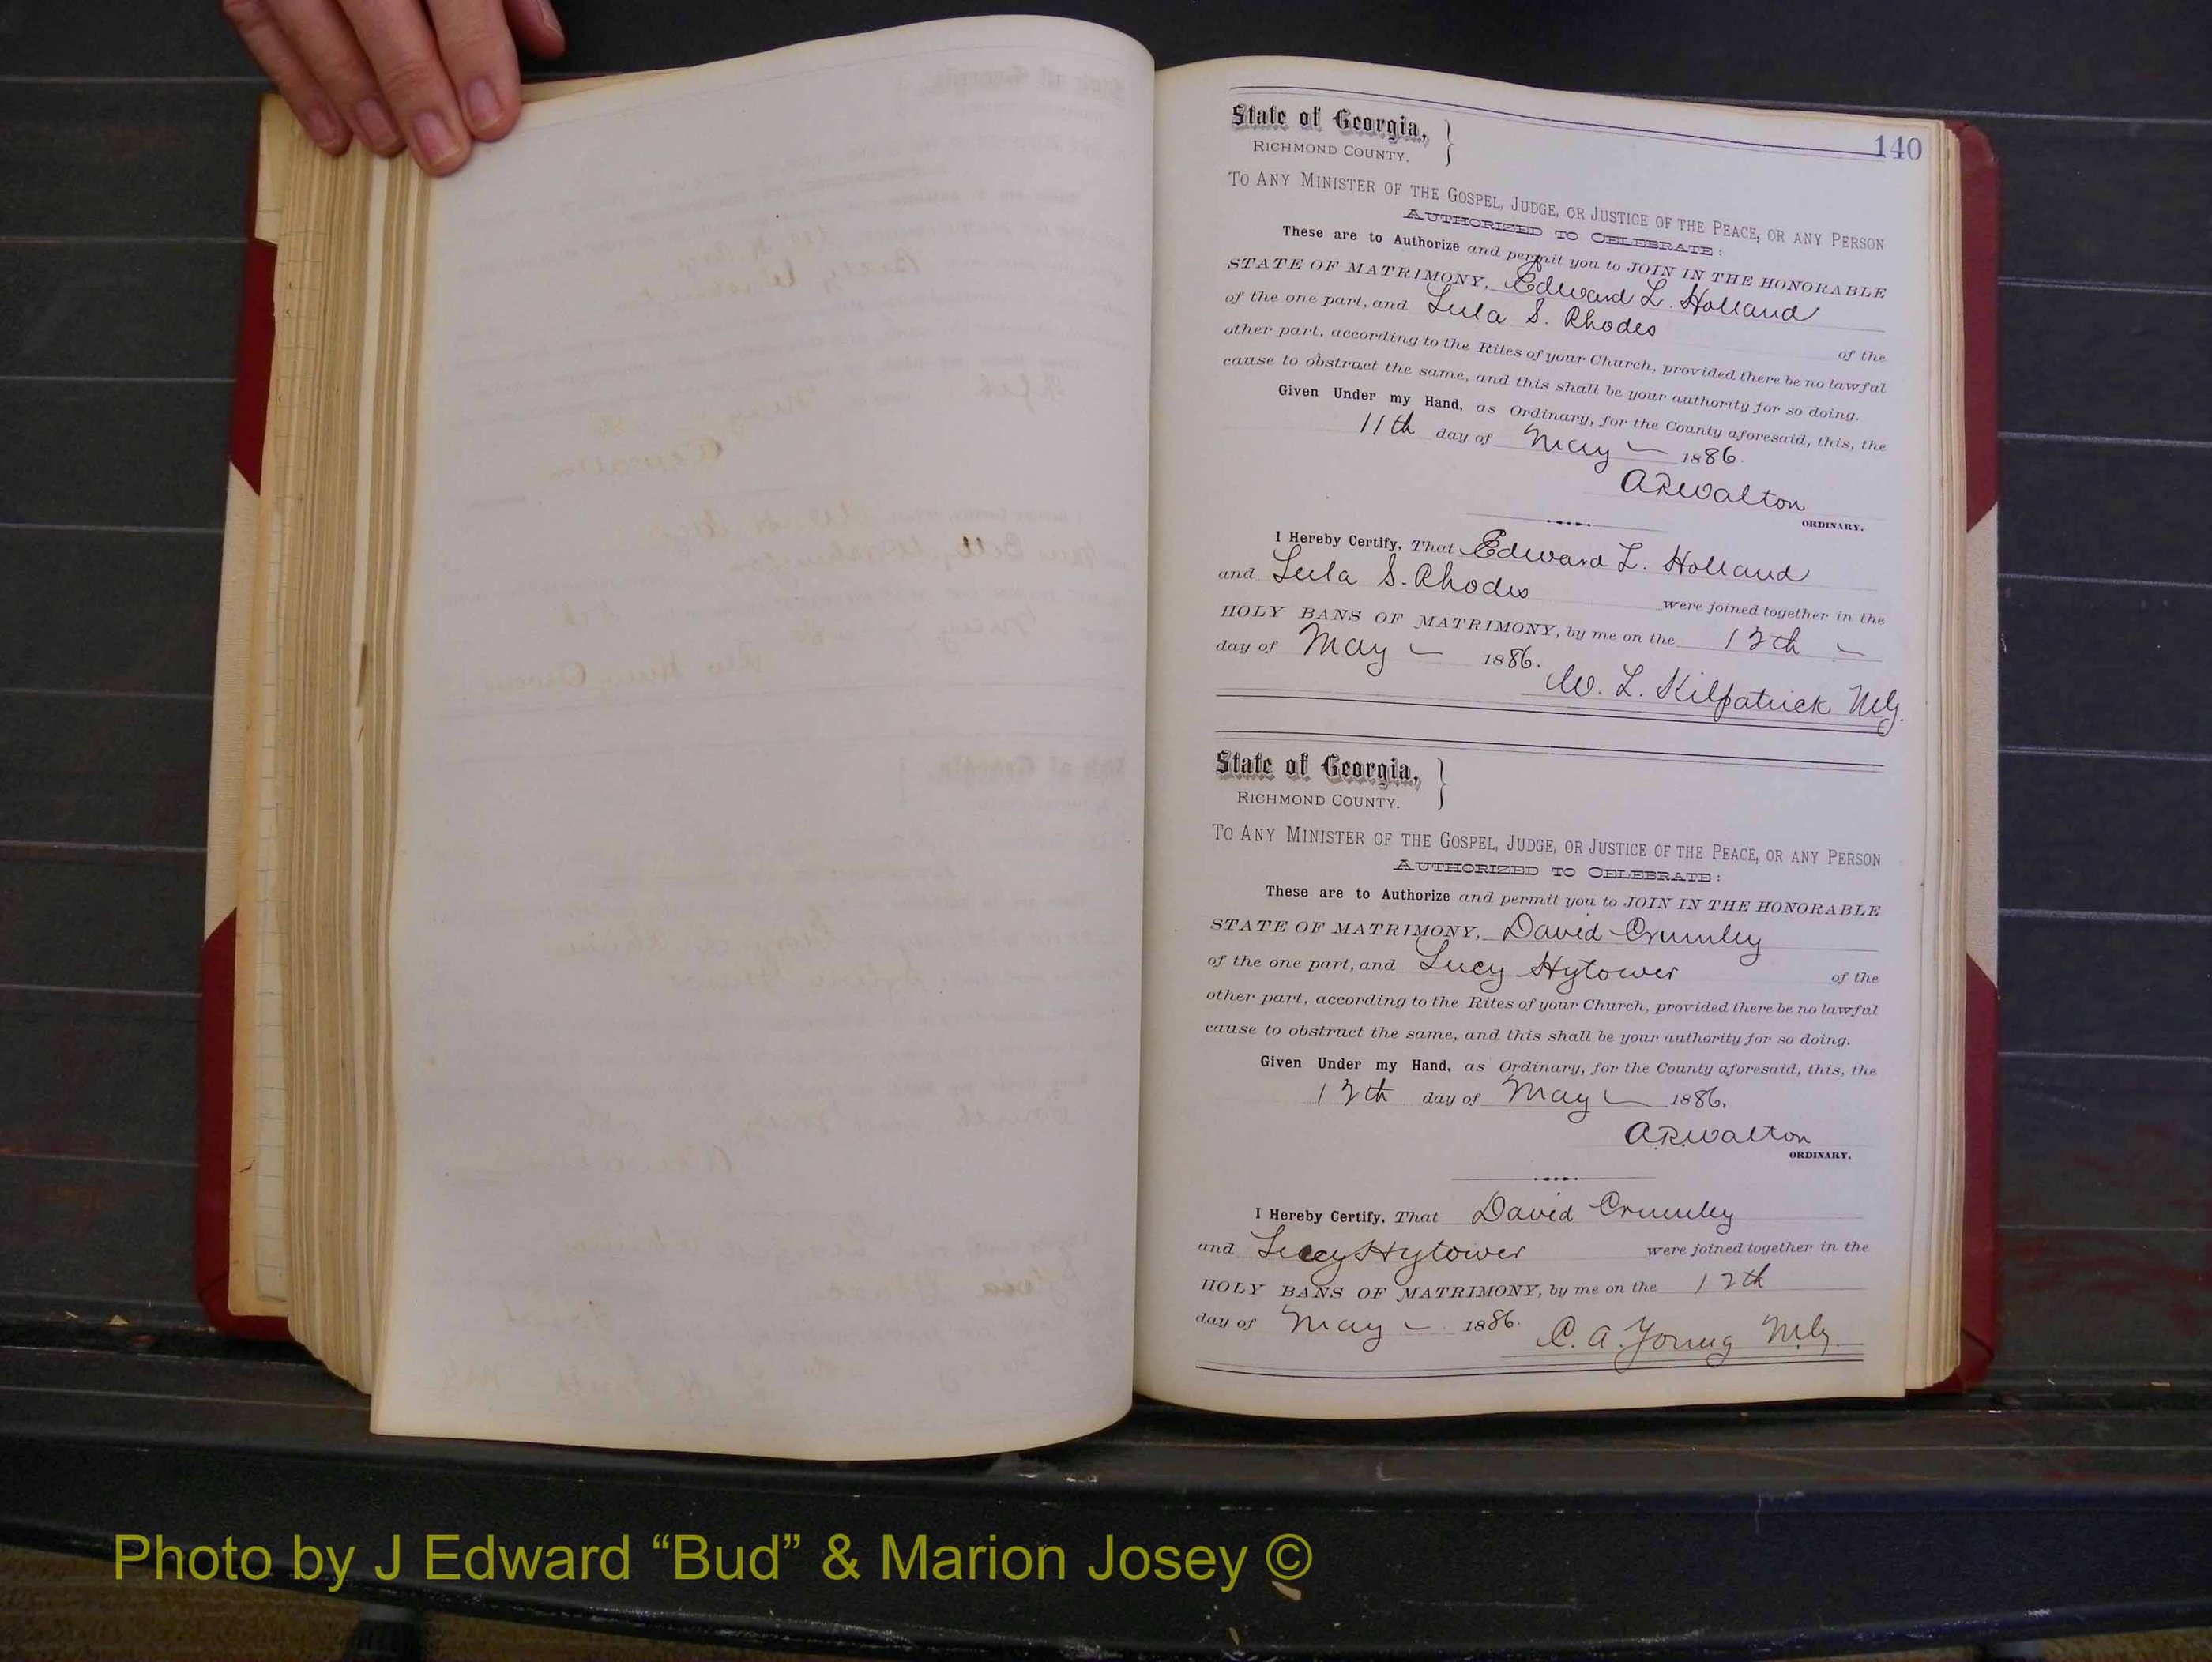 140
State of Georgia,
RICHMOND COUNTY.
TO ANY MINISTER OF THE GOSPEL, JUDGE, OR JUSTICE OF THE PEACE, OR ANY PERSON
AUTHORIZED TO CELEBRATE:
These are to Authorize and permit you to JOIN IN THE HONORABLE
STATE OF MATRIMONY, Edward L. Holland
of the one part, and Lula S. Rhodes of the
other part, according to the Rites of your Church, provided there be no lawful
cause to obstruct the same, and this shall be your authority for so doing.
Given Under my Hand, as Ordinary, for the County aforesaid, this, the
11th day of May 1886.
A R Walton
ORDINARY.
I Hereby Certify, That Edward L. Holland
and Lula S. Rhodes were joined together in the
HOLY BANS OF MATRIMONY, by me on the 12th
day of May 1886.
W. L. Kilpatrick M.G.
State of Georgia,
RICHMOND COUNTY.
TO ANY MINISTER OF THE GOSPEL, JUDGE, OR JUSTICE OF THE PEACE, OR ANY PERSON
AUTHORIZED TO CELEBRATE:
These are to Authorize and permit you to JOIN IN THE HONORABLE
STATE OF MATRIMONY, David Crumley
of the one part, and Lucy Hytower of the
other part, according to the Rites of your Church, provided there be no lawful
cause to obstruct the same, and this shall be your authority for so doing.
Given Under my Hand, as Ordinary, for the County aforesaid, this, the
12th day of May 1886.
A.R. Walton
ORDINARY.
I Hereby Certify, That David Crumley
and Lucy Hytower were joined together in the
HOLY BANS OF MATRIMONY, by me on the 12th
day of May 1886. C. A. Young M.G.
Photo by J Edward “Bud” & Marion Josey ©